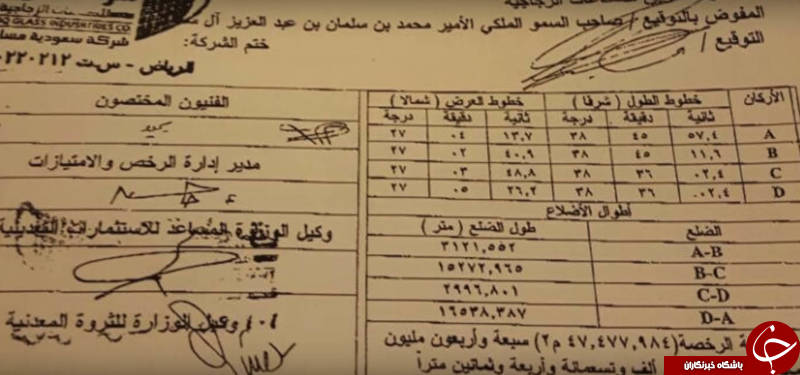 الزجاجية
المفوض بالتوقيع / صاحب السمو الملكي الأمير محمد بن سلمان بن عبد العزيز آل
التوقيع /
ختم الشركة:
GLASS INDUSTRIES CO
شركة سعودية
الرياض - س.ت
الأركان خطوط الطول ( شرقا ) خطوط العرض ( شمالا )
ثانية دقيقة درجة ثانية دقيقة درجة
A ٥٧,٤ ٤٥ ٣٨ ١٣,٧ ٠٤ ٢٧
B ١١,٦ ٤٥ ٣٨ ٤٠,٩ ٠٢ ٢٧
C ٠٢,٤ ٣٦ ٣٨ ٤٨,٨ ٠٣ ٢٧
D ٠٠٢,٤ ٣٦ ٣٨ ٢٦,٢ ٠٥ ٢٧
أطوال الأضلاع
الضلع طول الضلع ( متر )
A-B ٣١٢١,٥٥٢
B-C ١٥٢٧٢,٩٦٥
C-D ٢٩٩٦,٨٠١
D-A ١٦٥٣٨,٣٨٧
الرخصة (٤٧,٤٧٧,٩٨٤ م٢) سبعة وأربعون مليون
ألف وتسعمائة وأربعة وثمانين متراً
الفنيون المختصون
مدير إدارة الرخص والامتيازات
وكيل الوزارة المساعد للاستثمارات التعدينية
وكيل الوزارة للثروة المعدنية
باشگاه خبرنگاران